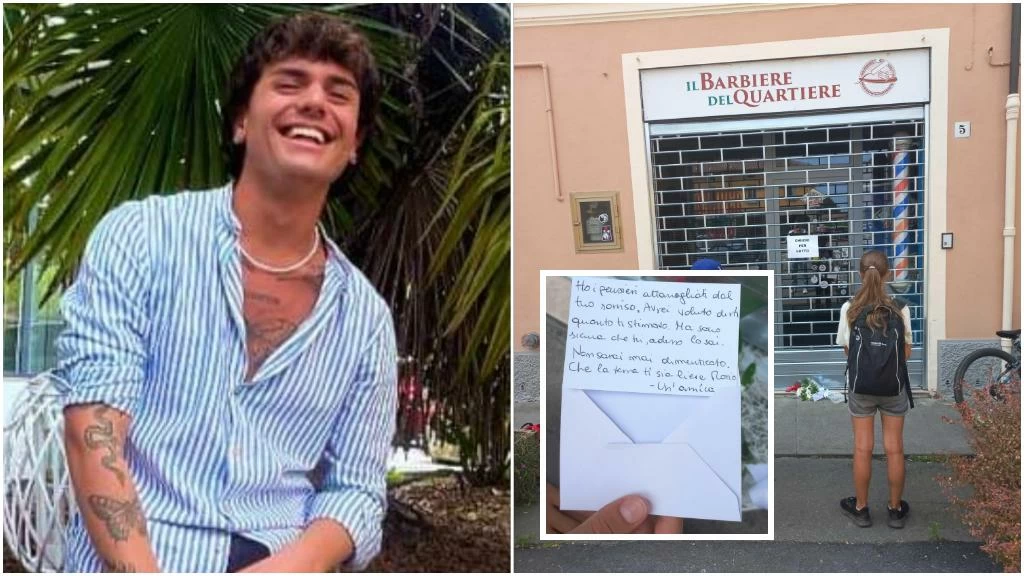 IL BARBIERE
DEL QUARTIERE
5
CHIUSO
PER
LUTTO
Ho i pensieri attanagliati dal
tuo sorriso. Avrei voluto dirti
quanto ti stimavo. Ma sono
sicura che tu, adesso lo sai.
Non sarai mai dimenticato.
Che la terra ti sia lieve
-Un'amica